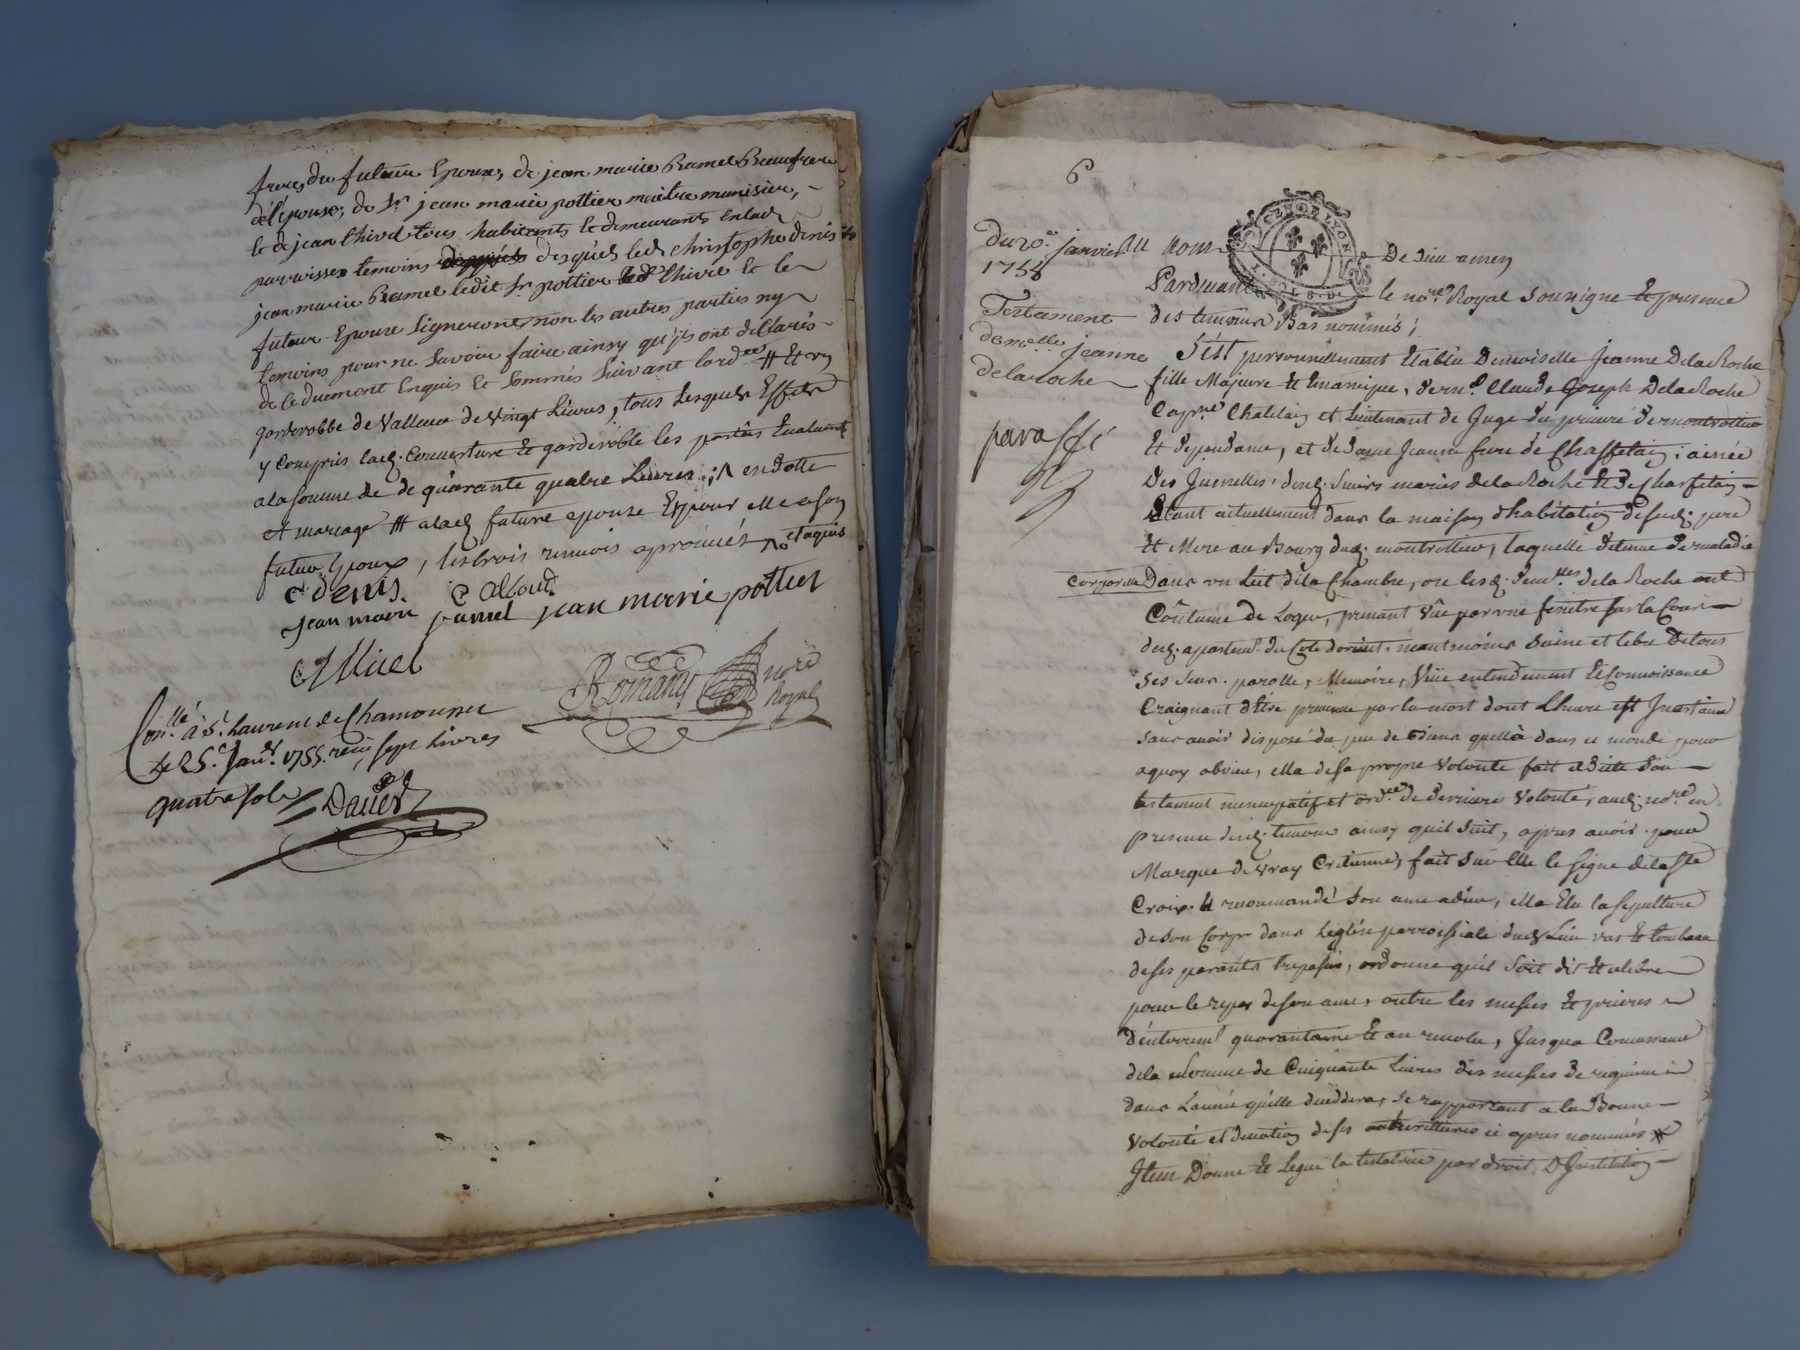 frere du futeur Epoux, de jean marie Ramel Beaufrere
de l'Epouse, de Sr jean marie pottier maitre menisier,
et de jean thivel tous habitants et demeurants en lad.
parroisses temoins desquels led. christophe denis
jean marie Ramel ledit Sr pottier led. thivel et le
futeur Epoux Signeront, non les autres parties ny
temoins pour ne Savoir faire ainsy qu'ils ont declarés
de ce duement Enquis et Sommés Suivant lordce # Et un
garderobbe de Valleur de vingt Livres, tous lesquels Effets
y compris lad. couverture et garderobbe les parties Evaluent
a la somme de de quarante quatre Livres; en dotte
et mariage # a lad. future epouse Et pour elle a son
futeur Epoux, les trois renvois aprouvés et aquis
C denis. C
jean marie ramel jean marie pottier
thivel
Romany nore
Royal
Conllé à St Laurent de Chamousset
le 25e Janer 1755. reçu sept livres
quatre sols
6
GEN DE LYON
du 20e janvier
1755
Testament
demelle jeanne
delaroche
paraffé
Au Nom De Dieu amen
Pardevant le nore Royal Soussigné Et presence
des temoins Bas nommés;
S'est personnellement Etablie Demoiselle Jeanne Dela Roche
fille Majeure Et de me Claude Joseph Dela Roche
Capne Chatelain et Lieutenant de Juge du prieuré de montrottier
Et dependance, et de dame Jeanne de Chaffelain; ainée
Des Jumelles desd. Sieurs mariés dela Roche Et De Chaffelain
Etant actuellement dans la maison d'habitation de sesd. pere
Et Mere au Bourg dud. montrottier, laquelle detenue de maladie
corporelle Dans un Lit dela Chambre, ou lesd. Demlles dela Roche ont
Coutume de Loger, prenant Vüe par une fenêtre sur la Cour
dud. apartemt du Coté dorient, neantmoins Saine et libre De tous
Ses Sens, parolle, Memoire, Vüe entendement Et Connoissance
Craignant d'Etre prevenue par la mort dont Lheure est Incertaine
sans avoir disposé du peu de Biens quelle à dans ce monde pour
aquoy obvier, elle de sa propre Volonté fait et dicte Son
testament nuncupatif et ordce de Derniere Volonté, aud. nore en
presence desd. temoins ainsy quil Suit, apres avoir pour
Marque de Vray Crétienne, fait Sur Elle le Signe de la Ste
Croix Et recommandé Son ame adieu, elle Elu la sepulture
de Son Corps dans Leglise parroissiale dud. Lieu vas Et tombeau
de ses parents trepasés, ordonne qu'il soit dit Et celebré
pour le repos de Son ame, outre les messes Et prieres
d'enterremt quarantaine Et an revolu, Jusqua Concurrance
dela Somme de Cinquante Livres des messes de requiem
dans Lannée quelle deceddera, se rapportant a la Bonne
Volonté et devotion de ses heritieres ci apres nommées #
Item Donne Et Legue la testatrice par droit D'Institution